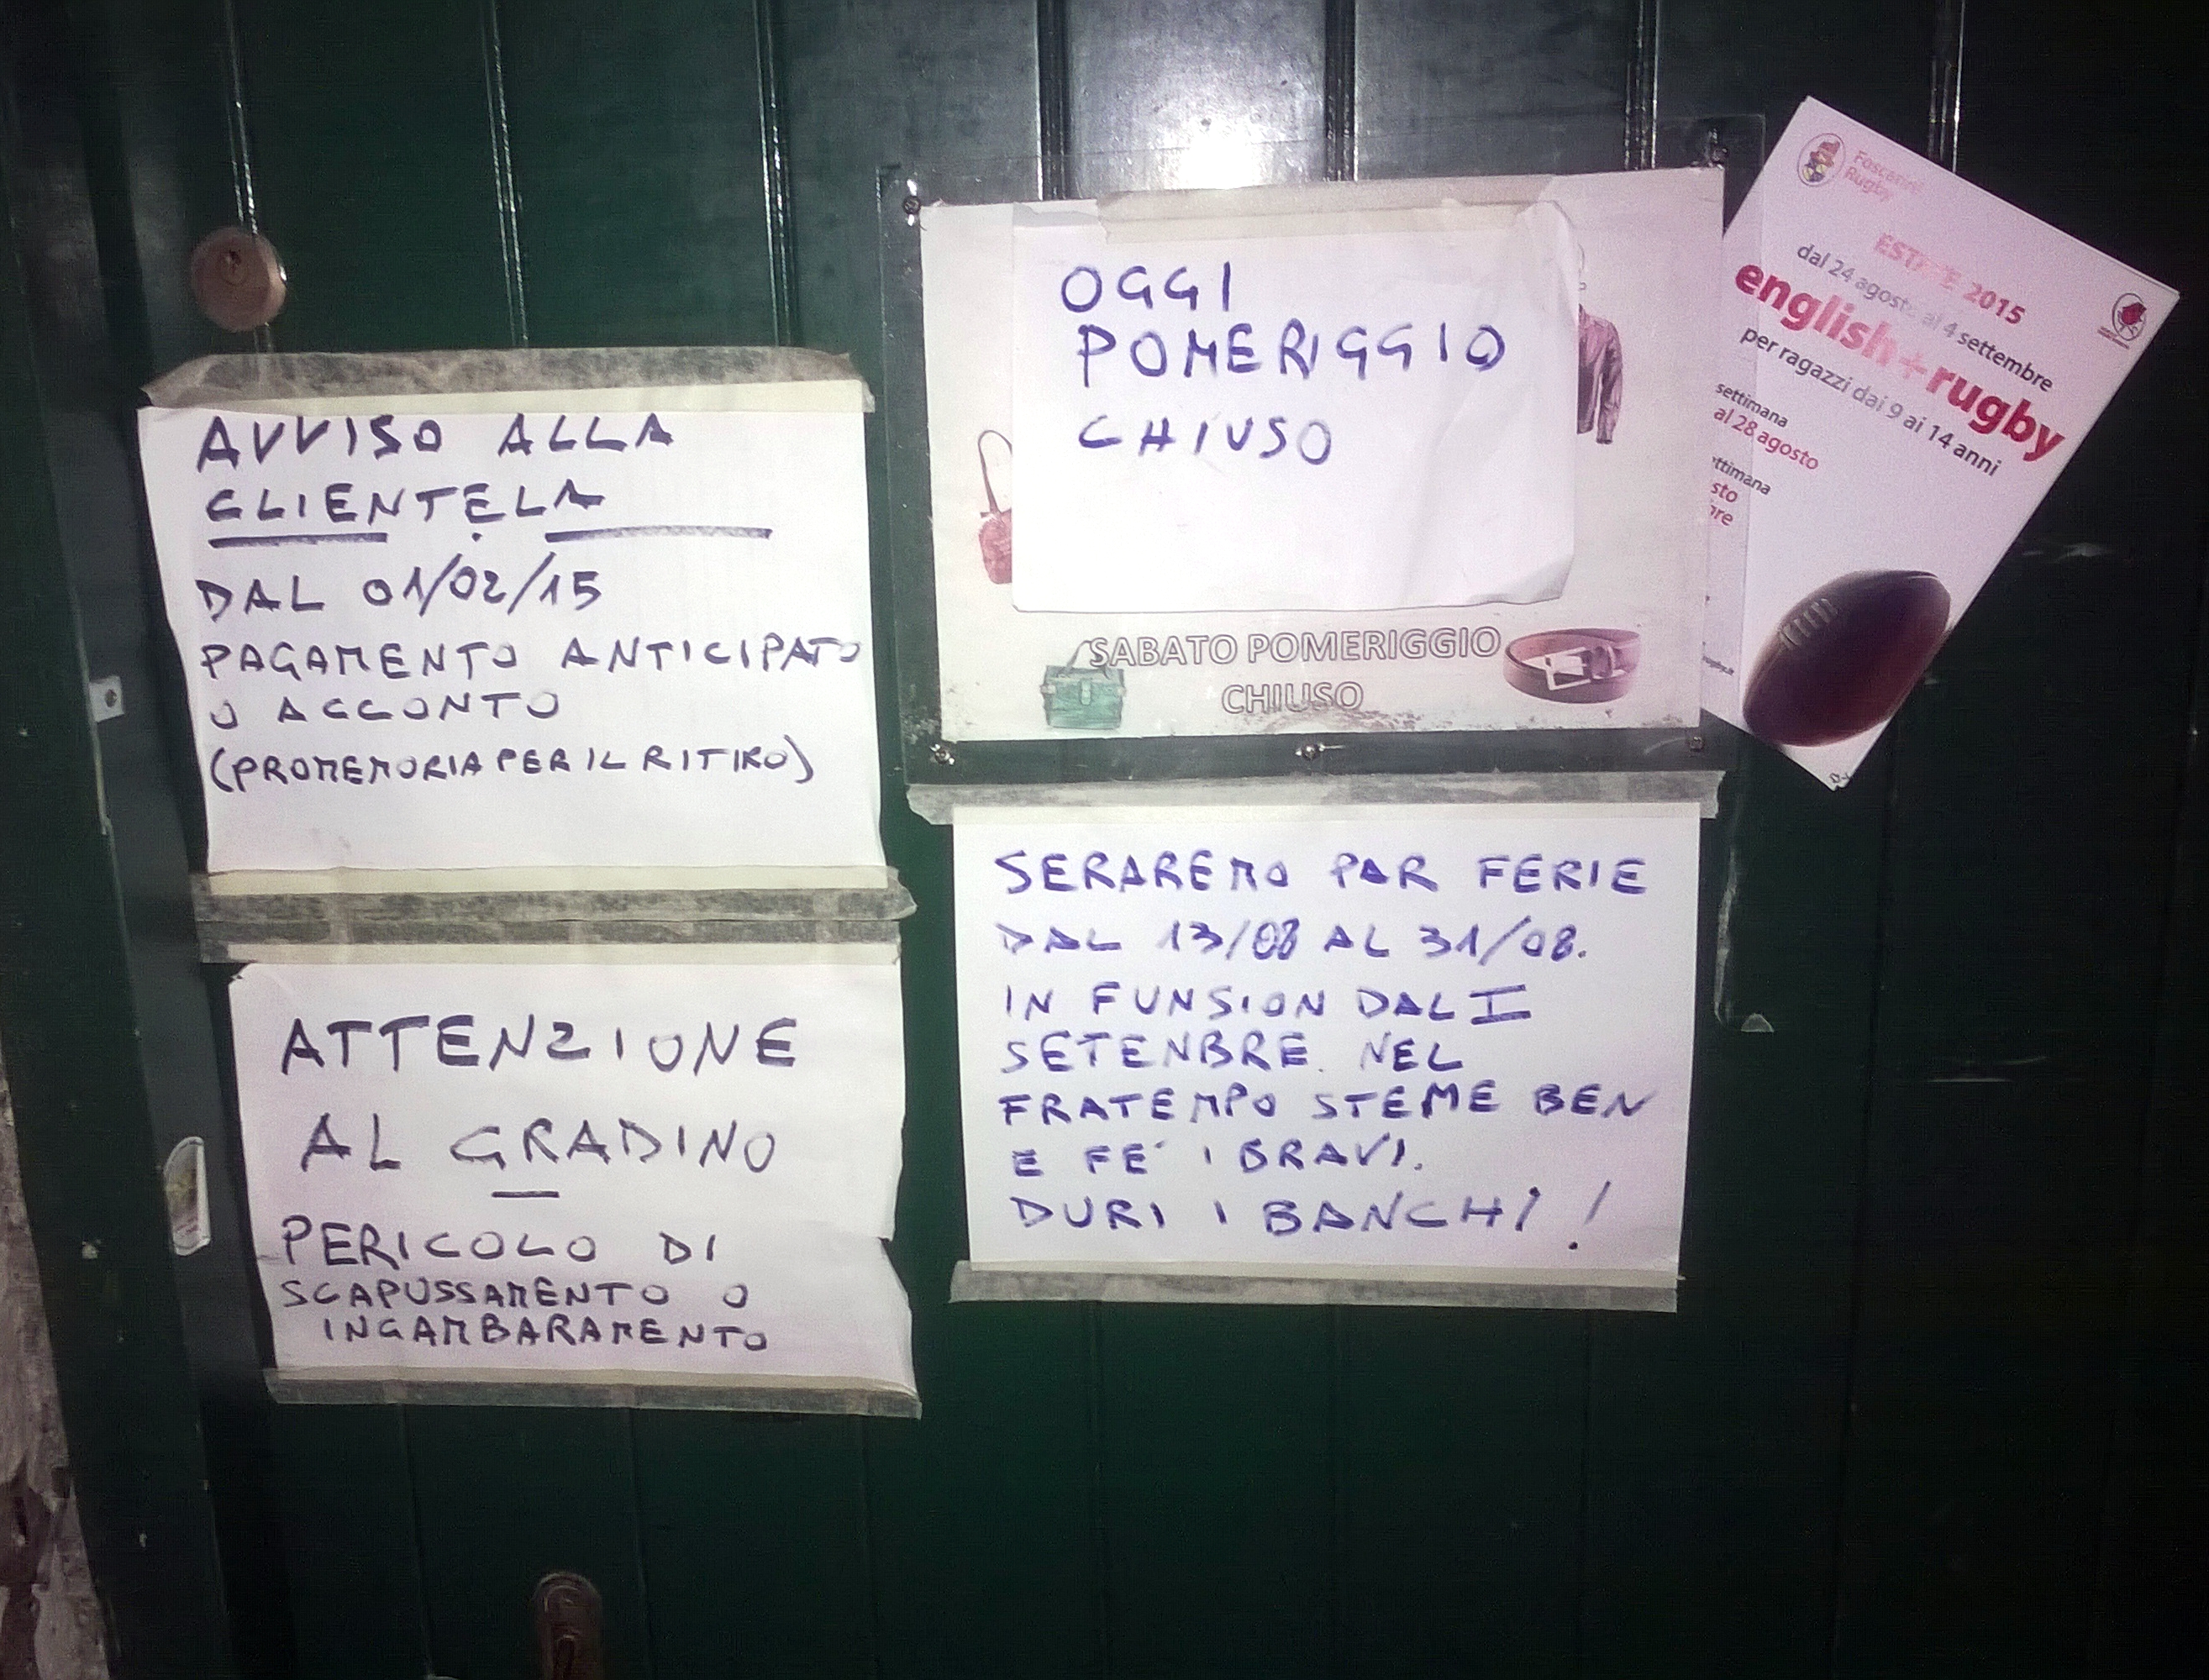 AVVISO ALLA
CLIENTELA
DAL 01/02/15
PAGAMENTO ANTICIPATO
O ACCONTO
(PROMEMORIA PER IL RITIRO)
ATTENZIONE
AL GRADINO
PERICOLO DI
SCAPUSSAMENTO O
INGAMBARAMENTO
OGGI
POMERIGGIO
CHIUSO
SABATO POMERIGGIO
CHIUSO
SERAREMO PAR FERIE
DAL 13/08 AL 31/08.
IN FUNSION DAL I
SETENBRE. NEL
FRATEMPO STEME BEN
E FE' I BRAVI.
DURI I BANCHI!
Foscarini
Rugby
ESTATE 2015
dal 24 agosto al 4 settembre
english+rugby
per ragazzi dai 9 ai 14 anni
settimana
al 28 agosto
ttimana
sto
bre